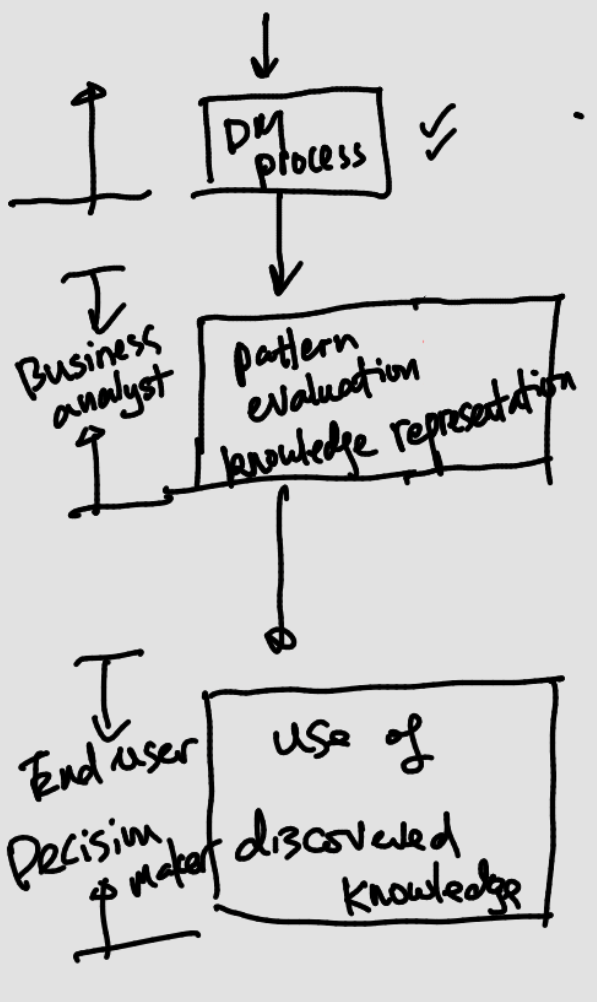 DM
process
Business
analyst
pattern
evaluation
knowledge representation
End user
Decision
maker
use of
discovered
knowledge